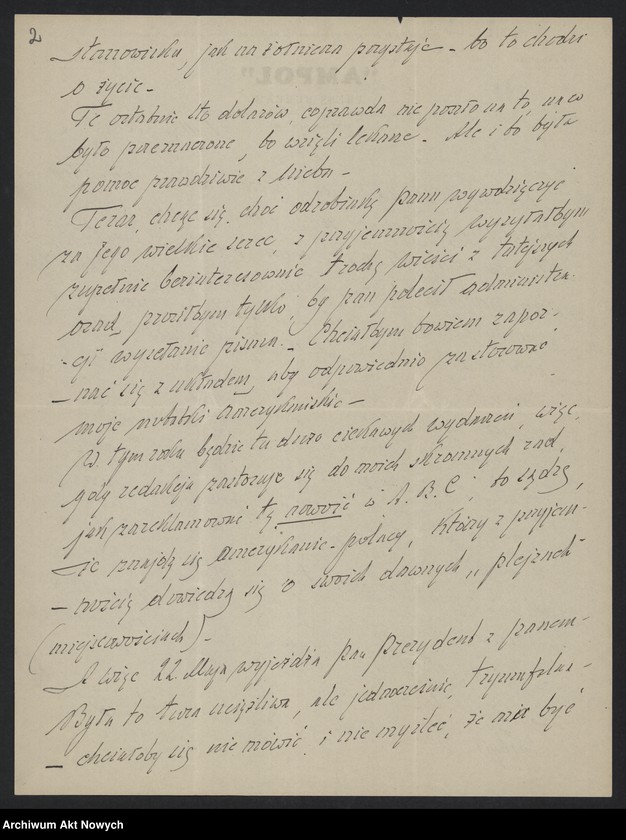 2
stanowisku, jak na żołnierza przystaje - bo to chodzi
o życie -
Te ostatnie sto dolarów, coprawda nie poszło na to, na co
było przeznaczone, bo wzięli lekarze - Ale i to była
pomoc prawdziwie z nieba -
Teraz, chcąc się, choć odrobinkę panu wywdzięczyć
za Jego wielkie serce, z przyjemnością wysyłałbym
zupełnie bezinteresownie trochę wieści z tutejszych
prosiłbym tylko, by pan polecił administra-
cji wysyłanie pisma. - Chciałbym bowiem zapoz-
- nać się z układem, aby odpowiednio zastosować
moje amerykańskie -
W tym roku będzie tu dużo ciekawych wydarzeń, więc,
gdy redakcja zastosuje się do moich skromnych rad,
jak zareklamować tę nowość w A. B. C, to sądzę,
- że znajdą się amerykanie - polacy, którzy z przyjem-
- nością dowiedzą się o swoich dawnych "plejzach"
(miejscowościach) -
A więc 22 Maja wyjeżdża pan Prezydent z panem -
Była to tura uciążliwa, ale jednocześnie, tryumfalna -
- chciałoby się nie mówić i nie myśleć, że ma być
"AMPOL"
Archiwum Akt Nowych